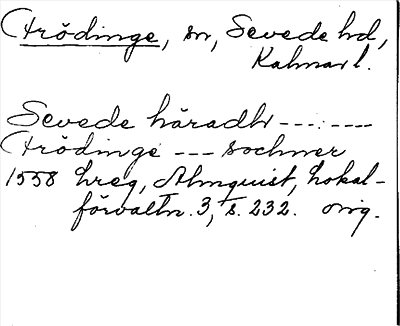 Frödinge, sn, Sevede hd,
Kalmar l.
Sevede häradh --------
Frödinge --- sochner
1558 hreg, Almquist, Lokal-
förvaltn. 3, s. 232. orig.